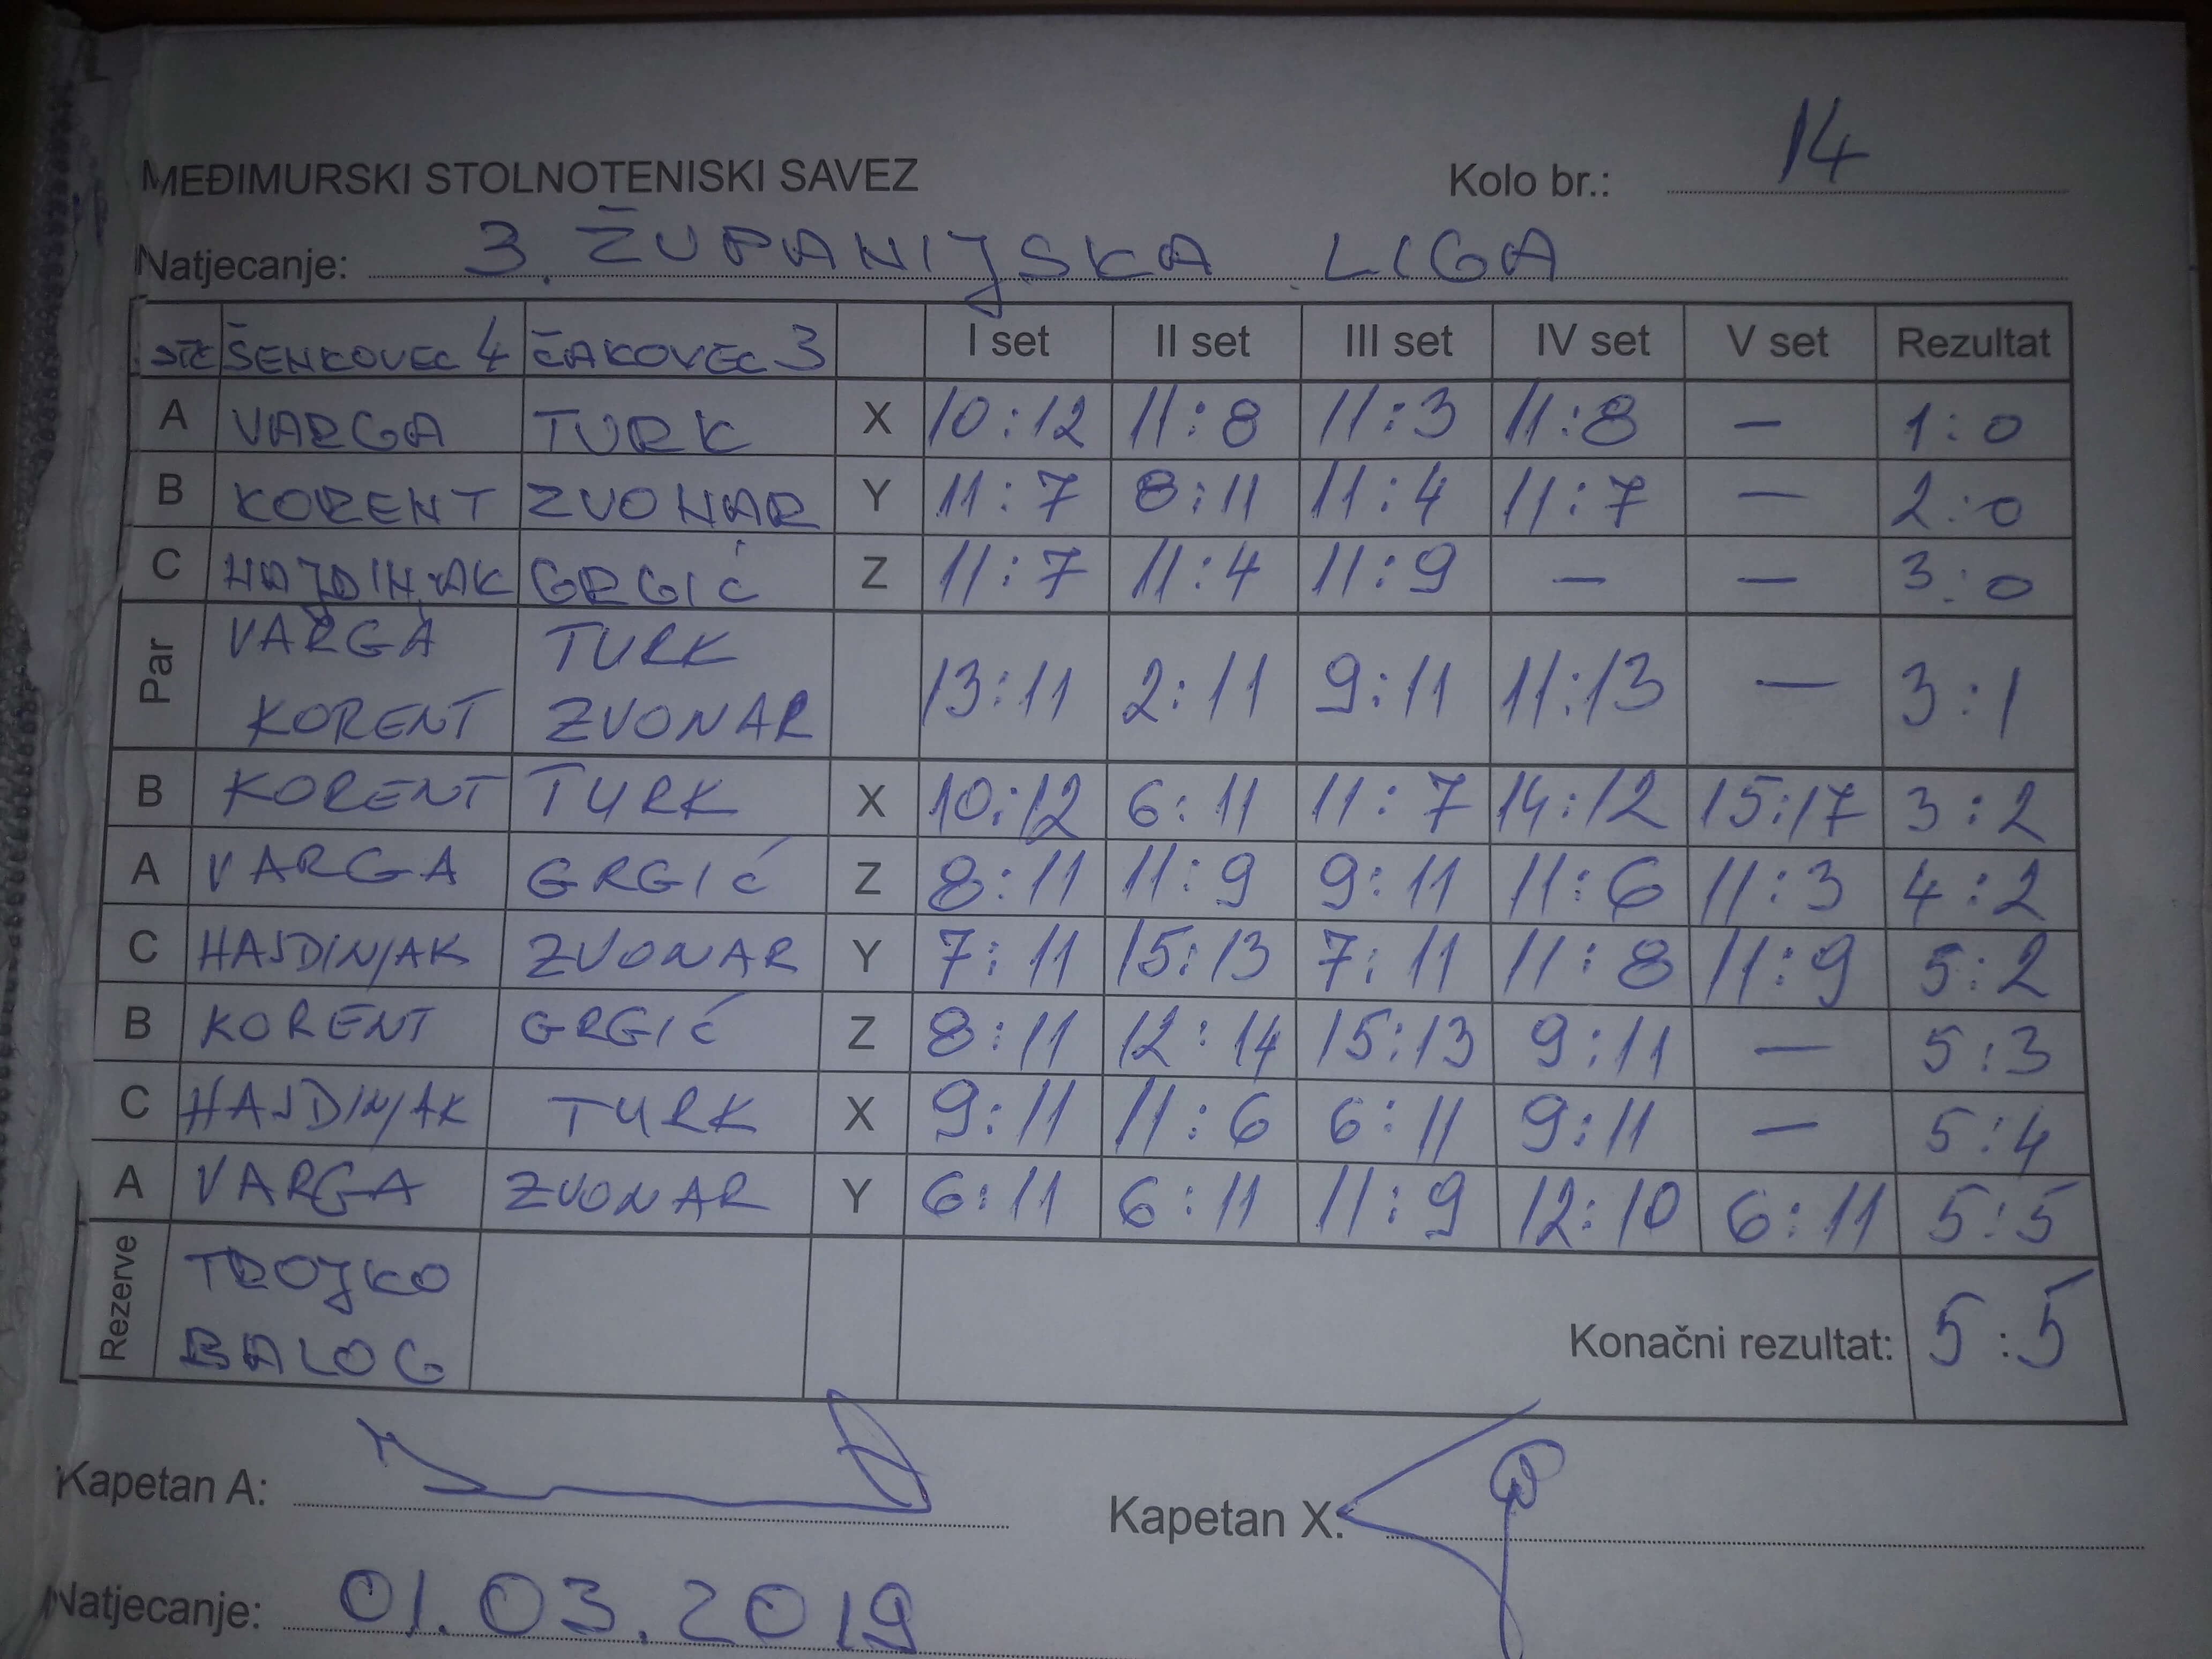 MEĐIMURSKI STOLNOTENISKI SAVEZ Kolo br.: 14
Natjecanje: 3. ŽUPANIJSKA LIGA
STK ŠENKOVEC 4 ČAKOVEC 3 I set II set III set IV set V set Rezultat
A VARGA TURK X 10:12 11:8 11:3 11:8 — 1:0
B KORENT ZVONAR Y 11:7 8:11 11:4 11:7 — 2:0
C HAJDINJAK GRGIĆ Z 11:7 11:4 11:9 — — 3:0
Par VARGA TURK
KORENT ZVONAR 13:11 2:11 9:11 11:13 — 3:1
B KORENT TURK X 10:12 6:11 11:7 14:12 15:17 3:2
A VARGA GRGIĆ Z 8:11 11:9 9:11 11:6 11:3 4:2
C HAJDINJAK ZVONAR Y 7:11 15:13 7:11 11:8 11:9 5:2
B KORENT GRGIĆ Z 8:11 12:14 15:13 9:11 — 5:3
C HAJDINJAK TURK X 9:11 11:6 6:11 9:11 — 5:4
A VARGA ZVONAR Y 6:11 6:11 11:9 12:10 6:11 5:5
Rezerve TROJKO
BALOG Konačni rezultat: 5:5
Kapetan A: Kapetan X:
Natjecanje: 01.03.2019